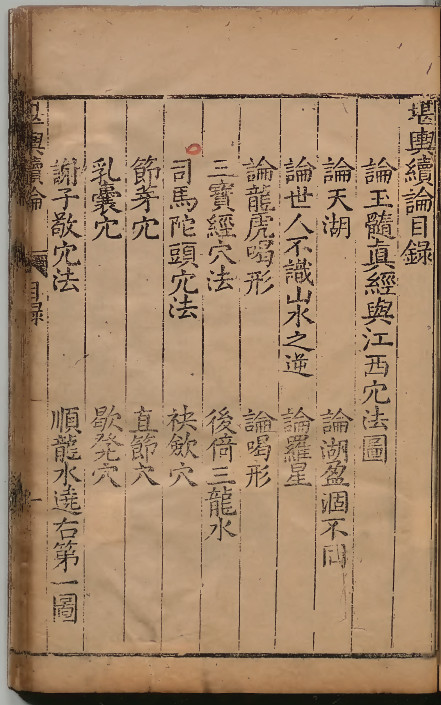 堪輿續論目錄
論玉髓真經與江西穴法圖
論天湖 論湖盈涸不同
論世人不識山水之逆 論羅星
論龍虎喝形 論喝形
三寶經穴法 後倚三龍水
司馬陀頭穴法 袂斂穴
節芽穴 直節穴
乳囊穴 歇茺穴
謝子敬穴法 順龍水遶右第一圖
堪輿續論 目錄 一